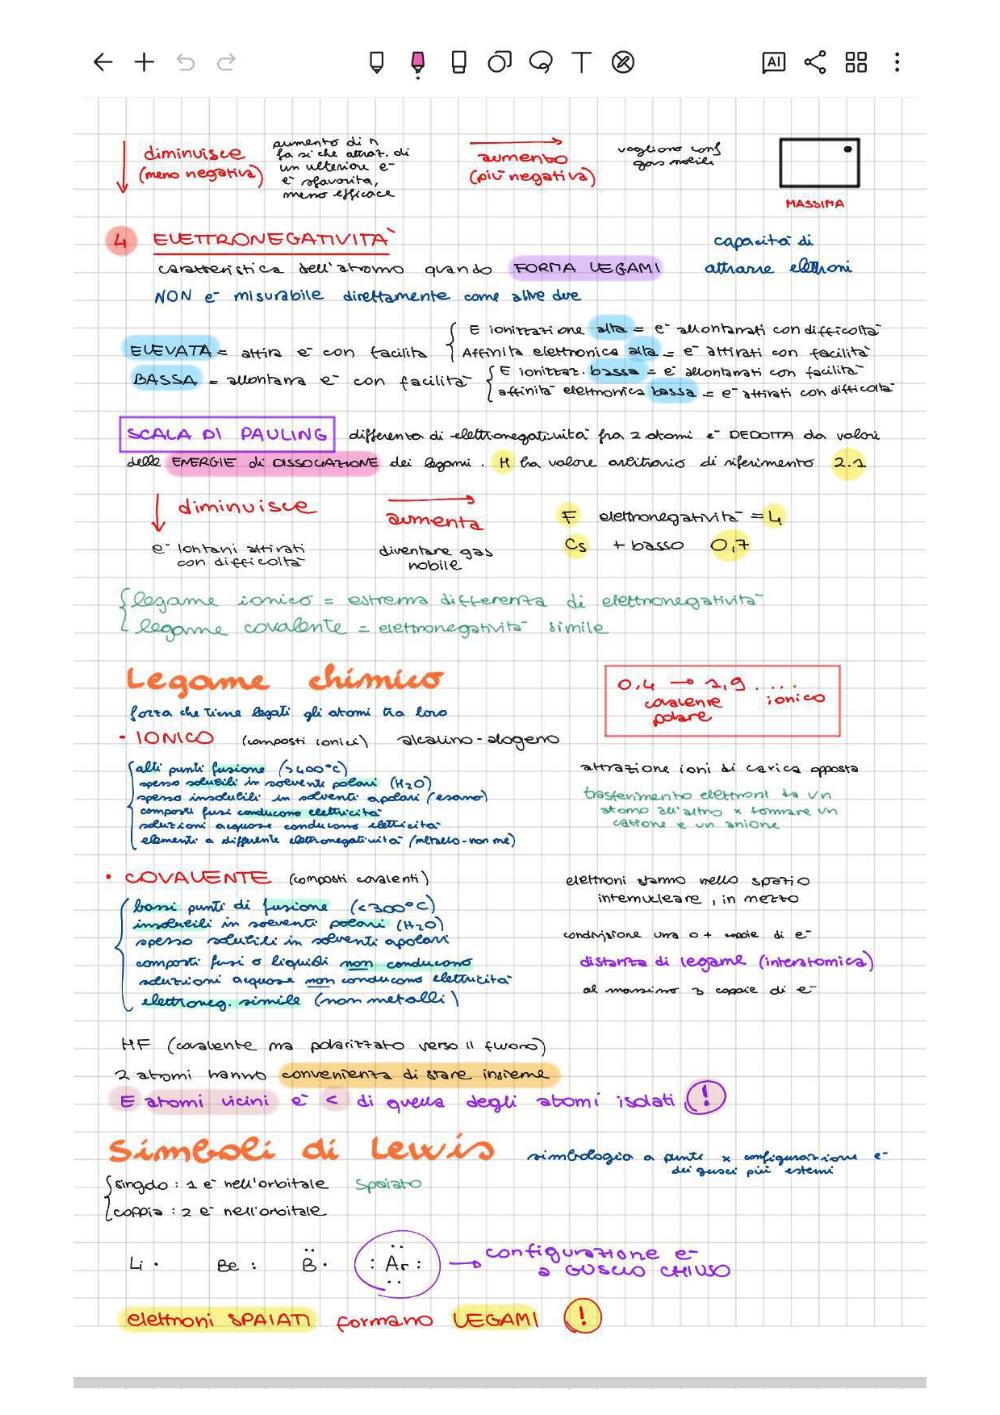 AI
diminuisce
(meno negativa)
aumento di n
fa sì che attraz. di
un ulteriore e-
è sfavorita,
meno efficace
aumento
(più negativa)
vogliono conf
gas nobili
MASSIMA
4 ELETTRONEGATIVITÀ
caratteristica dell'atomo quando FORMA LEGAMI
capacità di
attrarre elettroni
NON è misurabile direttamente come altre due
ELEVATA = attira e- con facilità
E ionizzazione alta = e- allontanati con difficoltà
Affinità elettronica alta = e- attirati con facilità
BASSA = allontana e- con facilità
E ionizzaz. bassa = e- allontanati con facilità
affinità elettronica bassa = e- attirati con difficoltà
SCALA DI PAULING differenza di elettronegatività fra 2 atomi è DEDOTTA da valori
delle ENERGIE di DISSOCIAZIONE dei legami. H ha valore arbitrario di riferimento 2.1
diminuisce
e- lontani attirati
con difficoltà
aumenta
diventare gas
nobile
F elettronegatività = 4
Cs + basso 0,7
legame ionico = estrema differenza di elettronegatività
legame covalente = elettronegatività simile
Legame chimico
0,4 → 1,9 ....
covalente
polare
ionico
forza che tiene legati gli atomi tra loro
- IONICO (composti ionici) alcalino-alogeno
alti punti fusione (>400°C)
spesso solubili in solvente polari (H2O)
spesso insolubili in solventi apolari (esano)
composti fusi conducono elettricità
soluzioni acquose conducono elettricità
elementi a differente elettronegatività (metallo-non me)
attrazione ioni di carica opposta
trasferimento elettroni da un
atomo all'altro x formare un
catione e un anione
• COVALENTE (composti covalenti)
bassi punti di fusione (<300°C)
insolubili in solventi polari (H2O)
spesso solubili in solventi apolari
composti fusi o liquidi non conducono
soluzioni acquose non conducono elettricità
elettroneg. simile (non metalli)
elettroni stanno nello spazio
internucleare, in mezzo
condivisione una o + coppie di e-
distanza di legame (interatomica)
al massimo 3 coppie di e-
HF (covalente ma polarizzato verso il fluoro)
2 atomi hanno convenienza di stare insieme
E atomi vicini è < di quella degli atomi isolati !
Simboli di Lewis simbologia a punti x configurazione e-
dei gusci più esterni
singolo : 1 e- nell'orbitale Spaiato
coppia : 2 e- nell'orbitale
Li · Be : B̈ · : Är : → configurazione e-
a GUSCIO CHIUSO
elettroni SPAIATI formano LEGAMI !